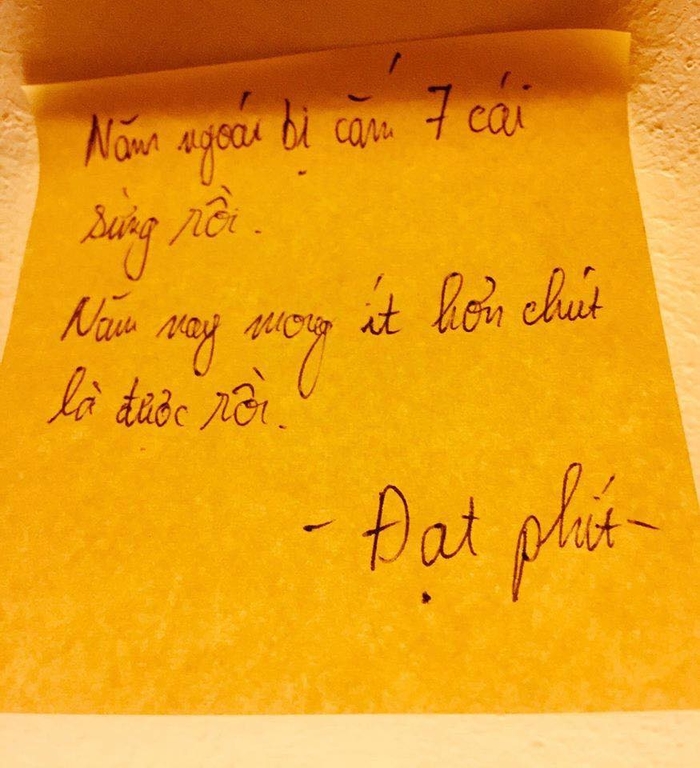 Năm ngoái bị cắm 7 cái
sừng rồi.
Năm nay mong ít hơn chút
là được rồi.
- Đạt phít -